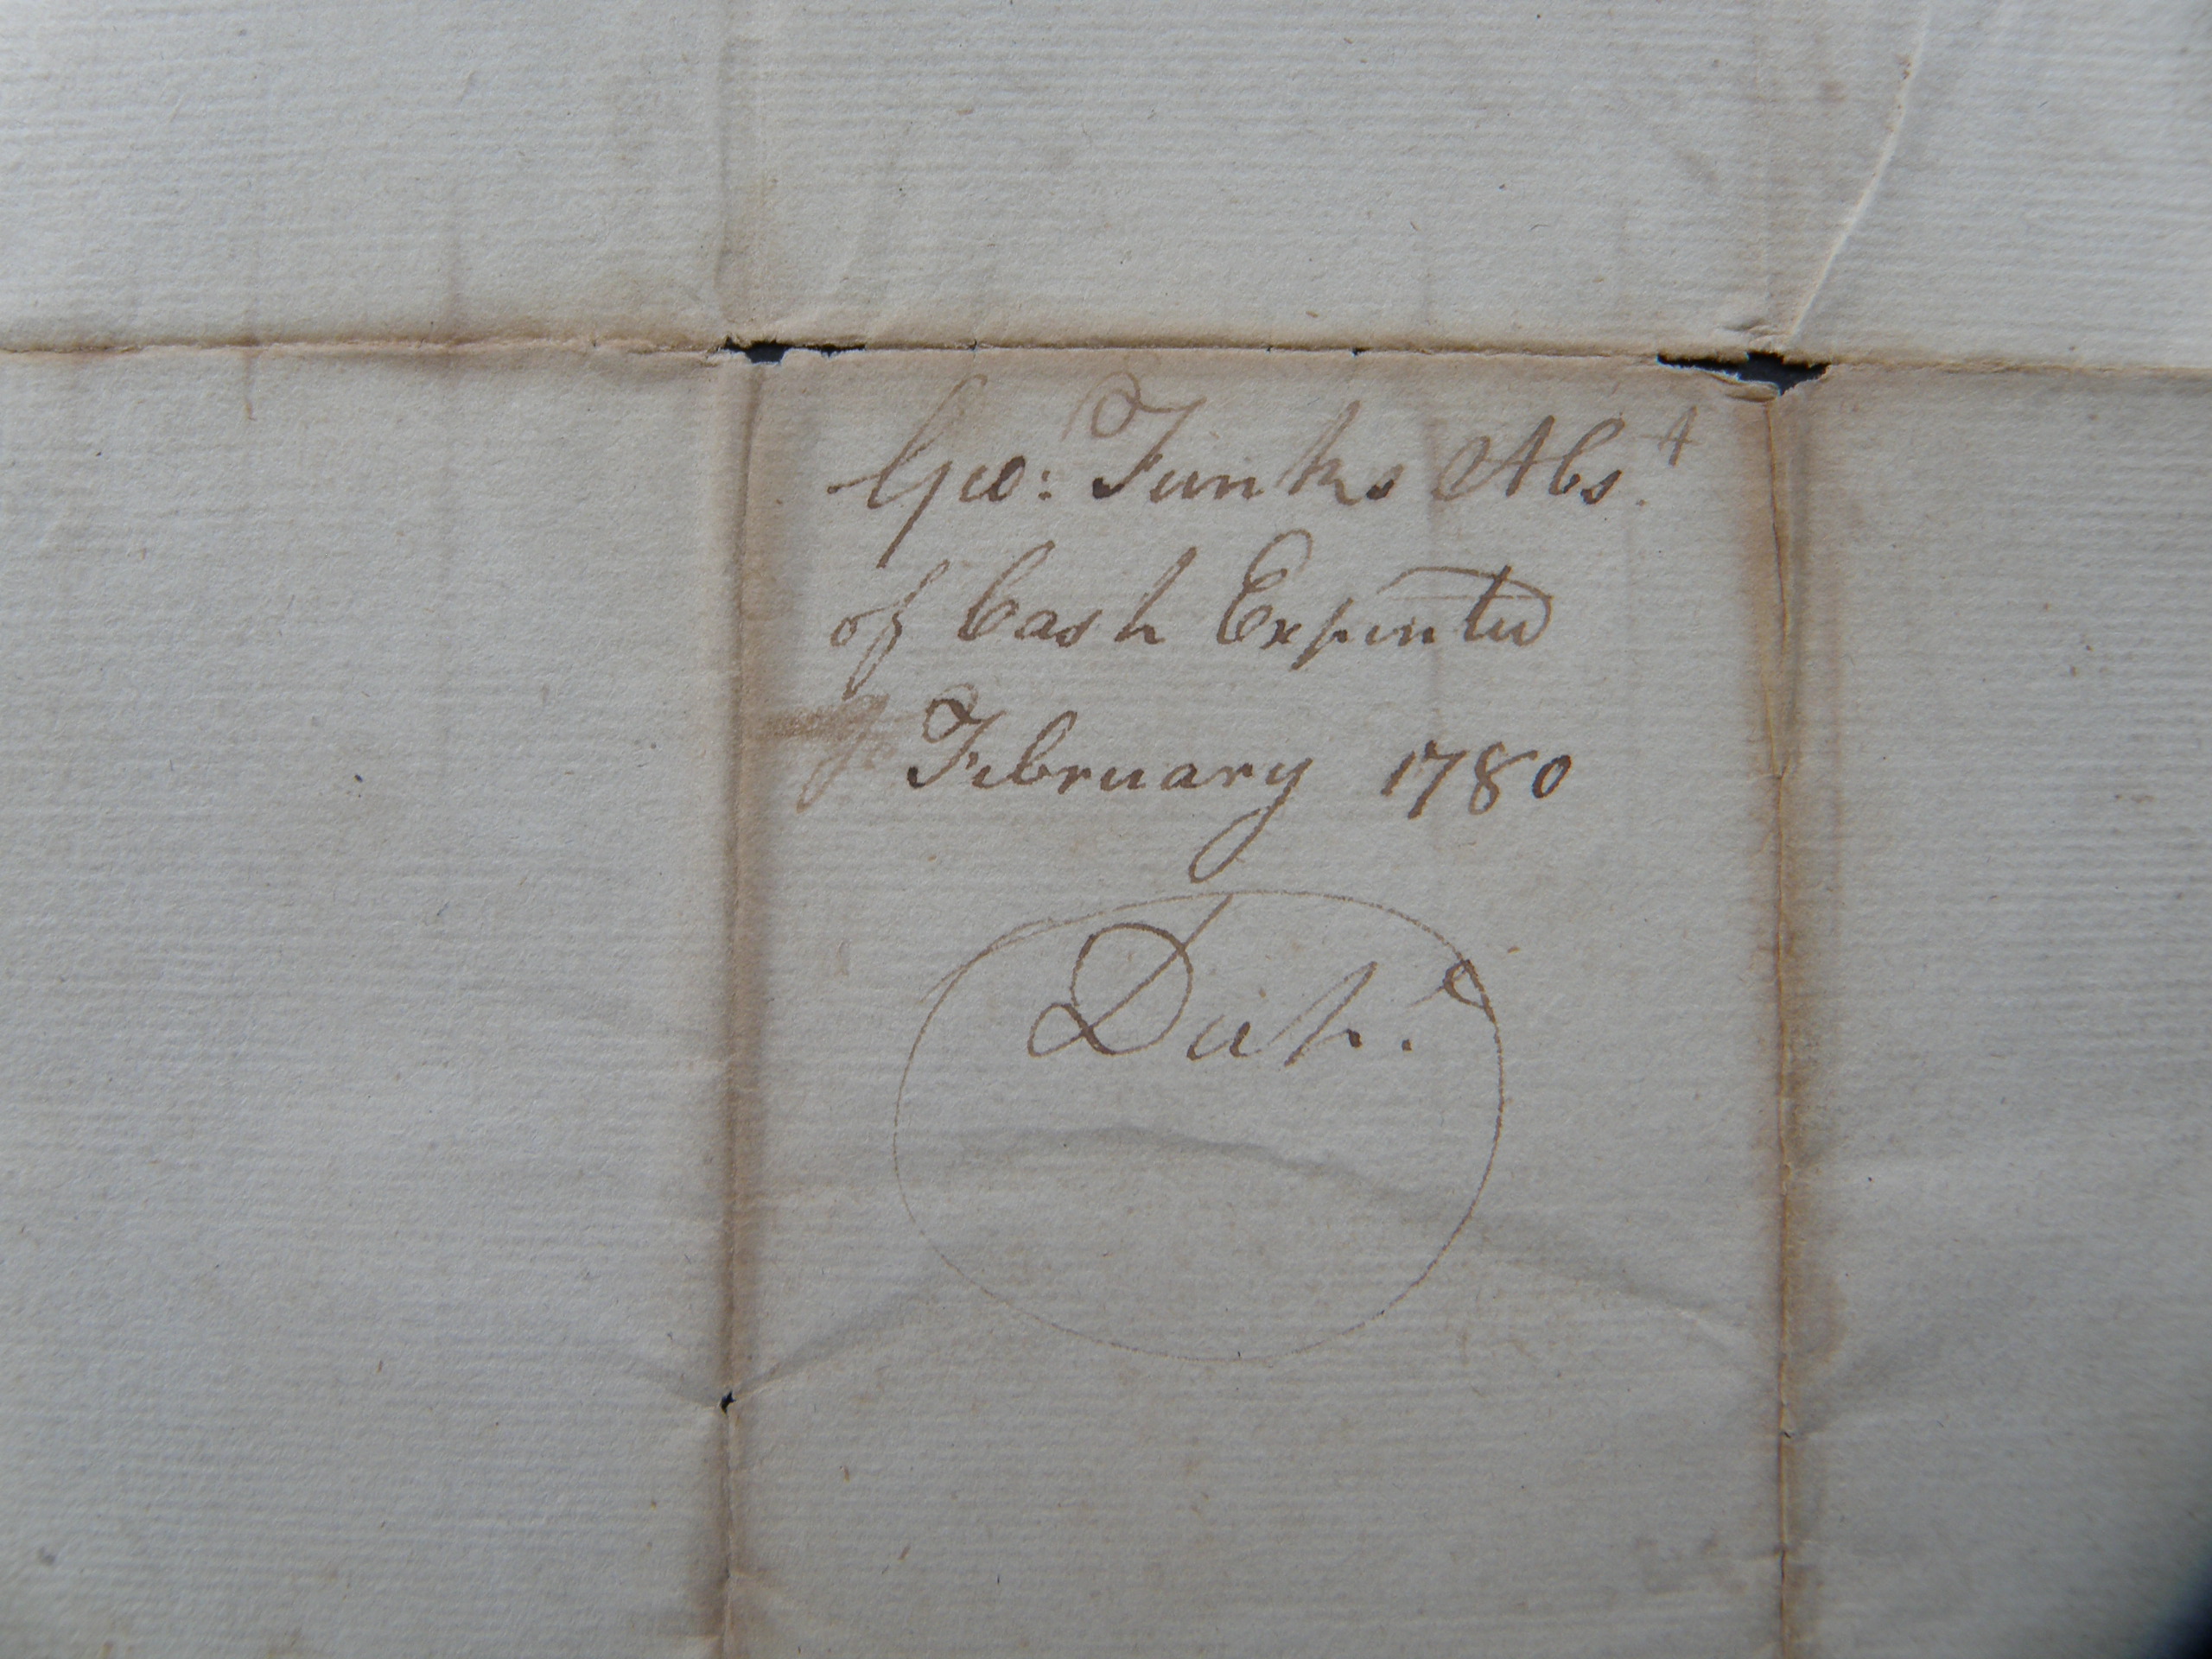 Geo: Funks Abst.
of Cash Expented
February 1780
Dup.